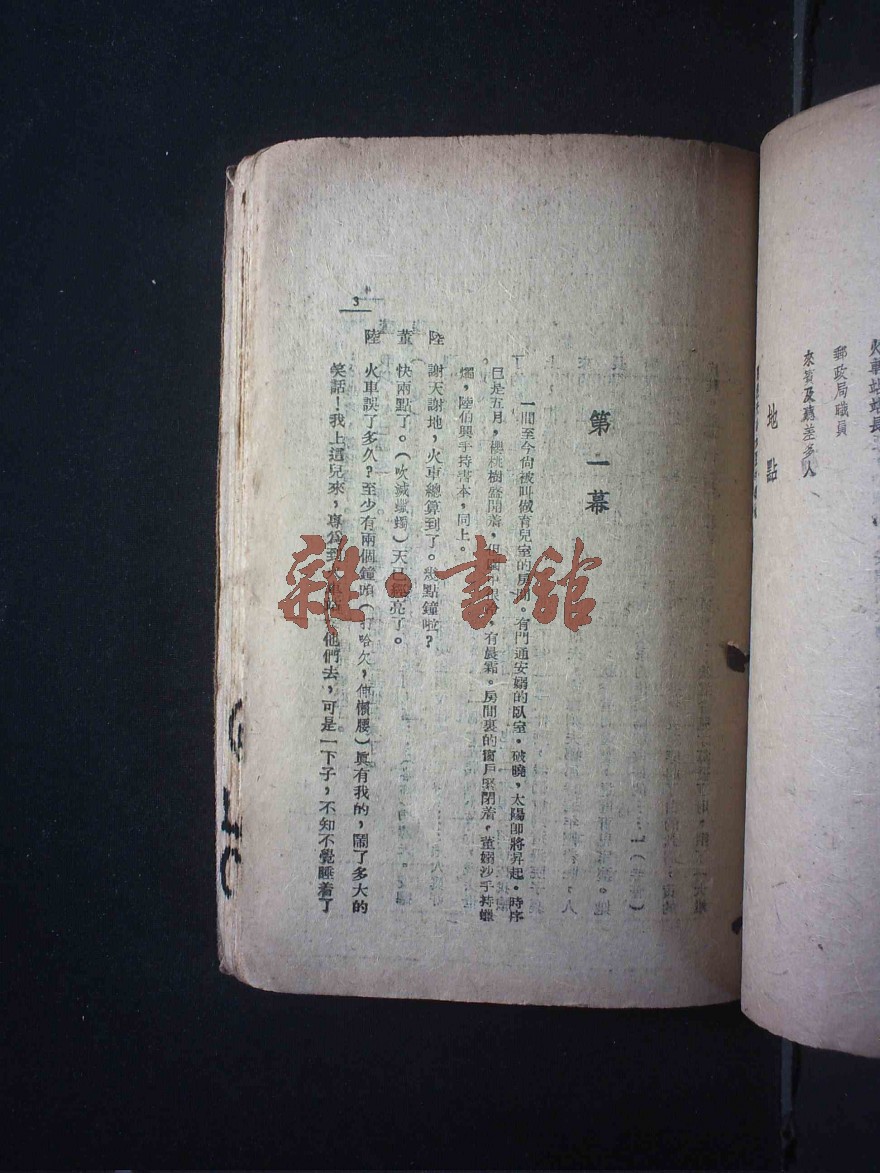 火車站站長
郵政局職員
來賓及聽差多人
地點
第一幕
一間至今尙被叫做育兒室的房間。有門通安嫋的臥室。破曉,太陽卽將昇起。時序
已是五月,櫻桃樹盛開着,但園中很冷,有晨霜。房間裏的窗戶緊閉着,董嫋沙手持蠟
燭,陸伯興手持書本,同上。
陸 謝天謝地,火車總算到了。幾點鐘啦?
董 快兩點了。(吹滅蠟燭)天已經亮了。
陸 火車誤了多久?至少有兩個鐘頭(打哈欠,伸懶腰)眞有我的,鬧了多大的
笑話!我上這兒來,專爲到火車站 他們去,可是一下子,不知不覺睡着了
3
雜·書館